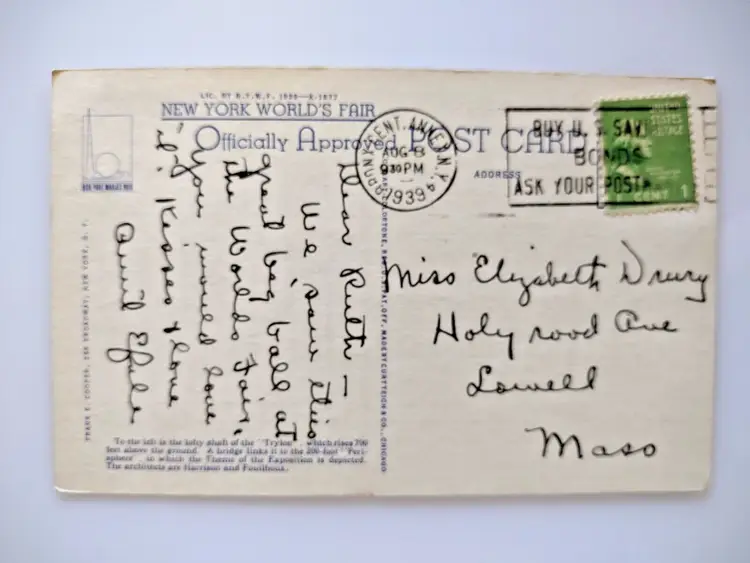 LIC. BY N.Y.W.F. 1939
NEW YORK WORLD'S FAIR
Officially Approved POST CARD
NEW YORK WORLD'S FAIR
ADDRESS
CENT. ANNEX, N.Y.
AUG 8
9 30 PM
1939
BUY U. S. SAV.
BONDS
ASK YOUR POSTM
UNITED
STATES
POSTAGE
1 CENT 1
Dear Ruth —
We saw this
great big ball at
the Worlds Fair,
You would love
it. Kisses & love
Miss Elizabeth Drury
Holy rood Ave
Lowell
Mass
FRANK E. COOPER, BROADWAY, NEW YORK, N. Y.
To the left is the lofty shaft of the "Trylon" which rises 700
feet above the ground. A bridge links it to the 200-foot "Peri-
sphere" in which the Theme of the Exposition is depicted.
The architects are Harrison and Fouilhoux.
CURTEICH & CO., CHICAGO